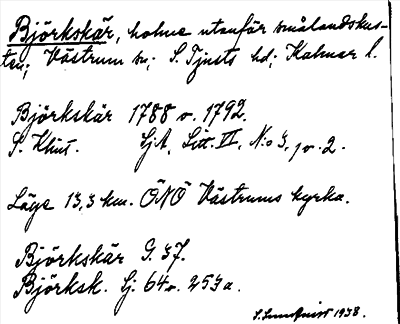 Björkskär, holme utanför smålandskus-
ten; Västrum sn; S. Tjusts hd; Kalmar l.
Björkskär 1788 o. 1792.
S. Klint. SjA, Litt. II, N:o 3, 1 o. 2.
Läge 13,3 km. ÖNÖ Västrums kyrka.
Björkskär G. 37.
Björksk. Sj. 64 o. 253 a.
1938.